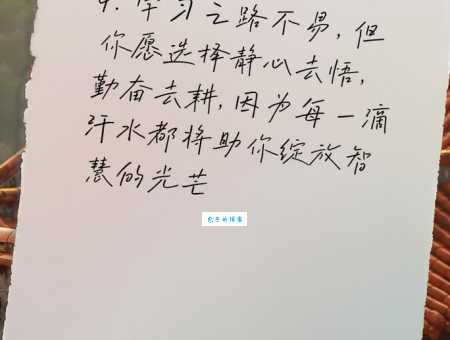 9.学习之路不易，但
你愿选择静心去悟，
勤奋去耕，因为每一滴
汗水都将助你绽放智
慧的光芒